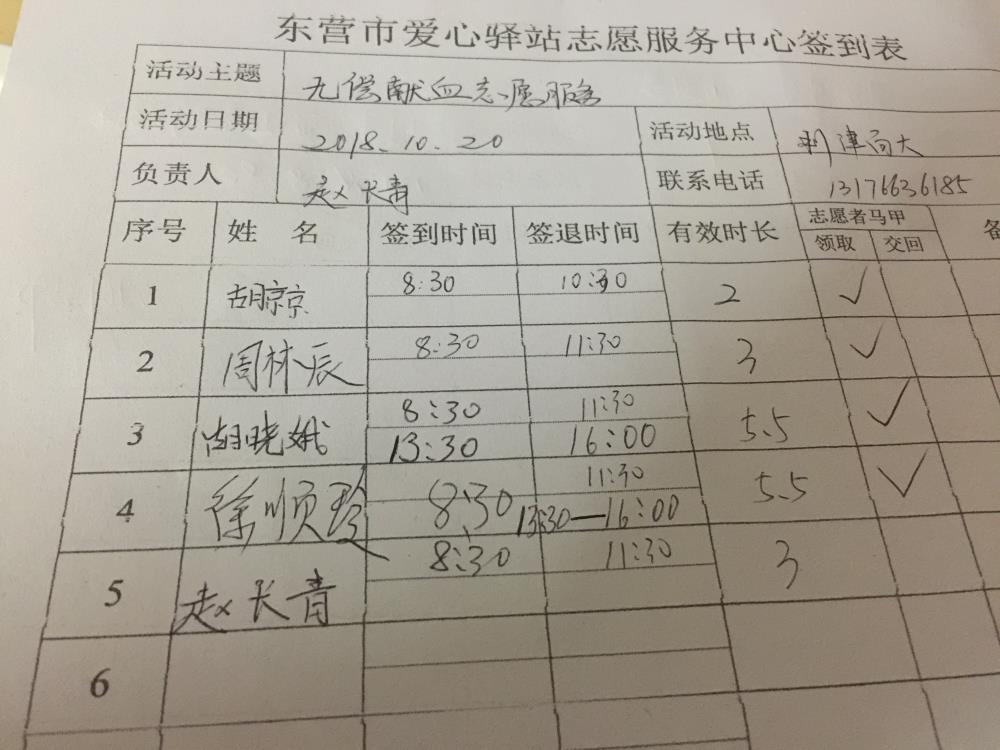 东营市爱心驿站志愿服务中心签到表
活动主题 无偿献血志愿服务
活动日期 2018.10.20 活动地点 利津商大
负责人 赵长青 联系电话 13176636185
序号 姓名 签到时间 签退时间 有效时长 志愿者马甲 备
领取 交回
1 胡京京 8:30 10:30 2 ✓
2 周林辰 8:30 11:30 3 ✓
3 胡晓娥 8:30 11:30 5.5 ✓
13:30 16:00
4 徐顺玲 8:30 11:30 5.5 ✓
13:30—16:00
5 赵长青 8:30 11:30 3
6